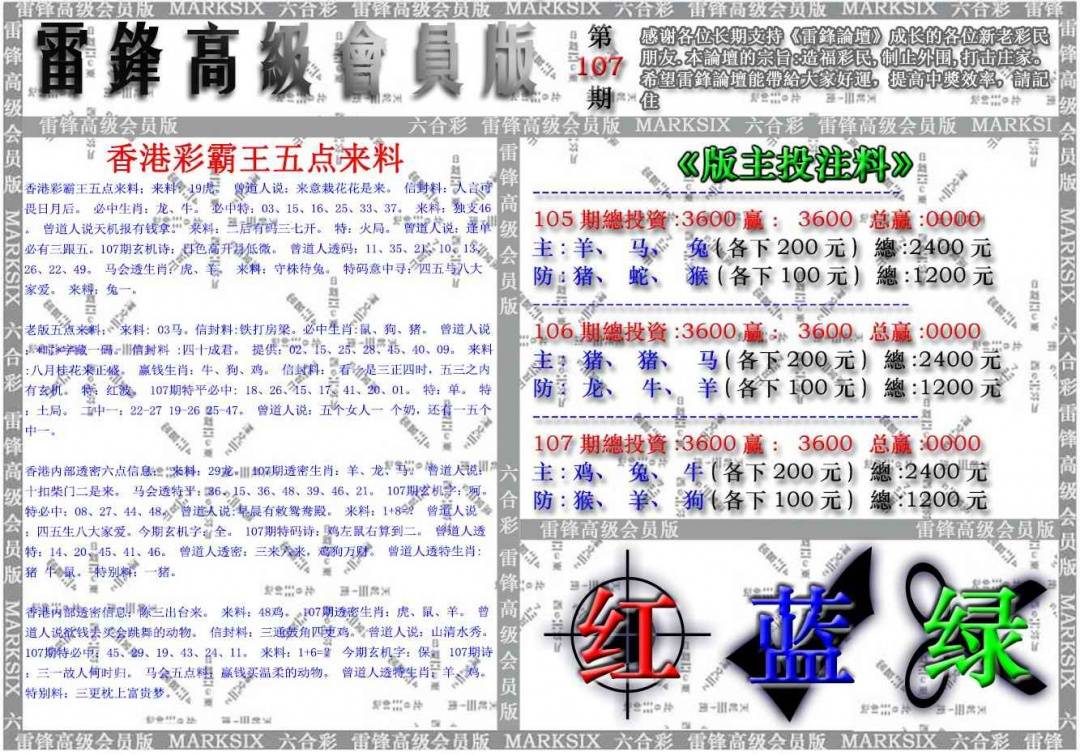 雷锋高级会员版 MARKSIX 六合彩 雷锋高级会员版 MARKSIX 六合彩 雷锋高级会员版 MARKSIX 六合彩 雷锋
雷鋒高級會員版
第
107
期
感谢各位长期支持《雷鋒論壇》成长的各位新老彩民
朋友.本論壇的宗旨:造福彩民,制止外围,打击庄家。
希望雷鋒論壇能帶給大家好運，提高中獎效率，請記
住
雷锋高级会员版 六合彩 雷锋高级会员版 MARKSIX 六合彩 雷锋高级会员版 MARKSI
香港彩霸王五点来料
香港彩霸王五点来料；来料：19虎。 曾道人说：来意栽花花是来。 信封料：人言可
畏日月后。 必中生肖：龙、牛。 必中特：03、15、16、25、33、37。 来料：独支46
。 曾道人说天机报有钱拿。 来料：二后有码三七开。 特：火局。 曾道人说：逢单
必有三跟五。107期玄机诗：白色高开易低微。 曾道人透码：11、35、21、10、13、
26、22、49。 马会透生肖：虎、羊。 来料：守株待兔。 特码意中寻：四五与八大
家爱。 来料：兔一。
老版五点来料； 来料：03马。信封料:铁打房梁。必中生肖:鼠、狗、猪。 曾道人说
字藏一码。 信封料 :四十成君。 提供：02、15、25、28、45、40、09。 来料
:八月桂花来正盛。 赢钱生肖：牛、狗、鸡。 信封料： 看一是三正四时，五三之内
有玄机。 特：红波。 107期特平必中：18、26、15、17、41、20、01。 特：单。 特
：土局。 二中一：22-27 19-26 25-47。 曾道人说：五个女人一 个奶，还有一五个
中一。
香港内部透密六点信息： 来料：29龙。 107期透密生肖：羊、龙、马。 曾道人说：
十扣柴门二是来。 马会透特平：36、15、36、48、39、46、21。 107期玄机字：河。
特必中：08、27、44、48。 曾道人说:早晨有敕鸳鸯殿。 来料：1+8=? 曾道人说
：四五生八大家爱。今期玄机字：全。 107期特码诗：鸡左鼠右算到二。 曾道人透
特：14、20、45、41、46。 曾道人透密：三来六来，鸡狗万财。 曾道人透特生肖:
猪 牛 鼠。 特别料：一猪。
香港内部透密信息：陈三出台来。 来料：48鸡。 107期透密生肖：虎、鼠、羊。 曾
道人说欲钱去买会跳舞的动物。 信封料：三通鼓角四更鸡。 曾道人说：山清水秀。
107期特必中：45、29、19、43、24、11。 来料：1+6=? 今期玄机字：保。 107期诗
：三一故人何时归。 马会五点料：赢钱买温柔的动物。 曾道人透特生肖：羊、鸡。
特别料：三更枕上富贵梦。
《版主投注料》
105 期總投資:3600 赢： 3600 总赢:0000
主：羊、 马、 兔(各下 200 元) 總:2400 元
防：猪、 蛇、 猴(各下 100 元) 總:1200 元
106 期總投資:3600 赢： 3600 总赢:0000
主： 猪、 猪、 马(各下 200 元) 總:2400 元
防： 龙、 牛、 羊(各下 100 元) 總:1200 元
107 期總投資:3600 赢： 3600 总赢:0000
主：鸡、 兔、 牛(各下 200 元) 總:2400 元
防：猴、 羊、 狗(各下 100 元) 總:1200 元
雷锋高级会员版 雷锋高级会员版
红 蓝 绿
雷锋高级会员版 MARKSIX 六合彩
雷锋高级会员版 六合彩 雷锋高级会员版
雷锋高级会员版 MARKSIX 六合彩 雷锋高级会员版 MARKSIX
雷锋高级会员版 MARKSIX 六合彩 雷锋高级会员版 MARKSIX 六合彩 雷锋高级会员版 MARKSIX 六合彩 雷锋